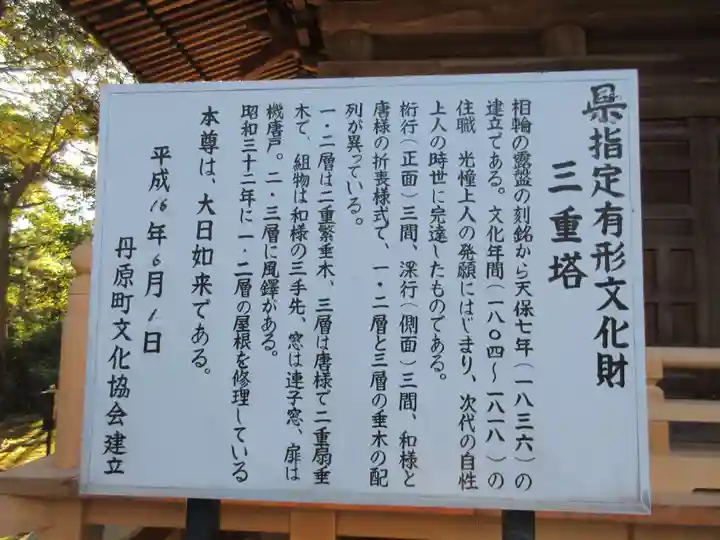 県指定有形文化財
三重塔
相輪の露盤の刻銘から天保七年(一八三六)の
建立である。文化年間(一八〇四～一八一八)の
住職 光憧上人の発願にはじまり、次代の自性
上人の時世に完達したものである。
桁行(正面)三間、深行(側面)三間、和様と
唐様の折衷様式で、一・二層と三層の垂木の配
列が異っている。
一・二層は二重繁垂木、三層は唐様で二重扇垂
木て、組物は和様の三手先、窓は連子窓、扉は
機唐戸。二・三層に風鐸がある。
昭和三十二年に一・二層の屋根を修理している
本尊は、大日如来である。
平成16年6月1日
丹原町文化協会建立